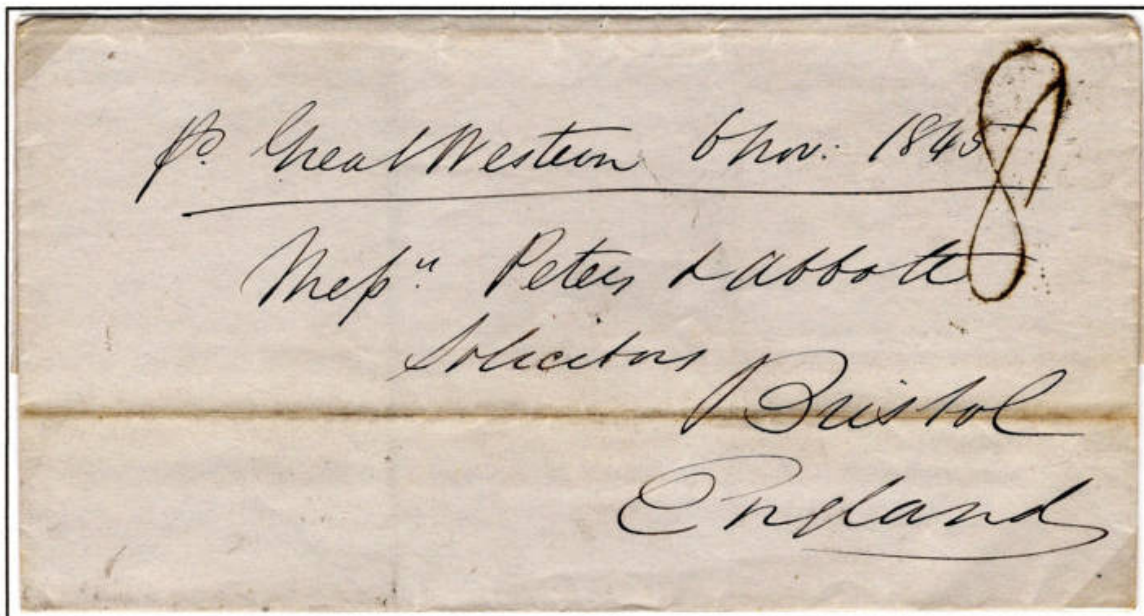 p. Great Western 6 Nov: 1845
8
Messrs Peters & Abbott
Solicitors
Bristol
England